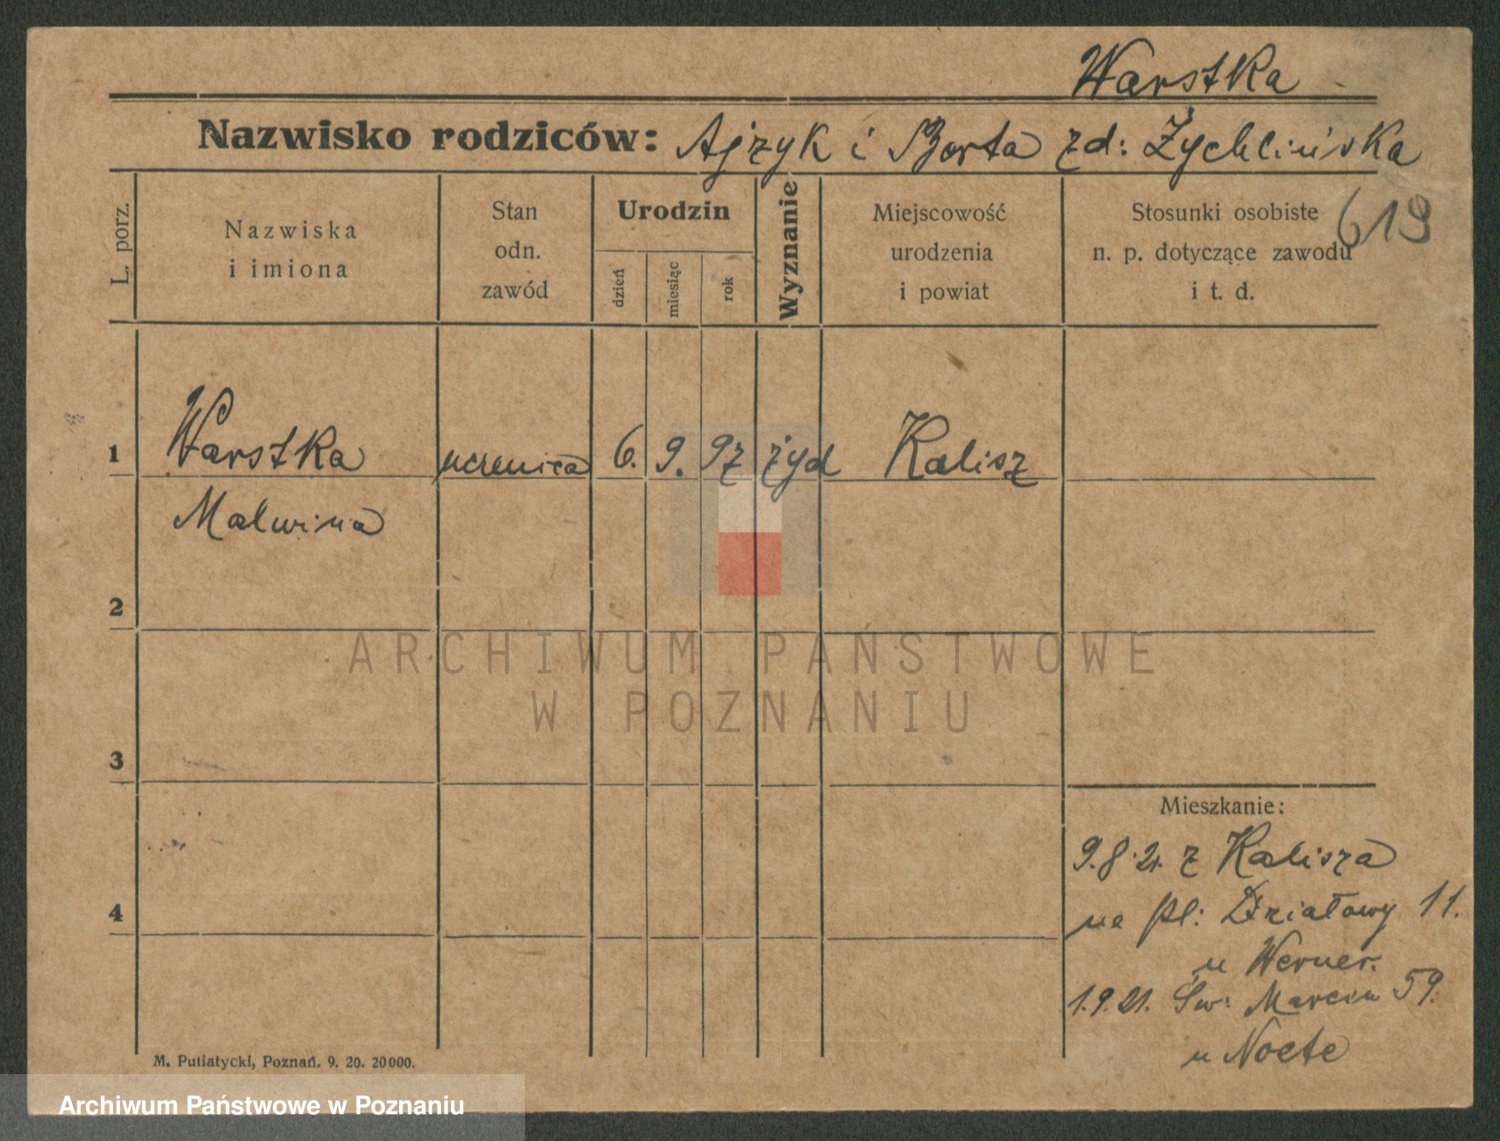 Warstka
Nazwisko rodziców: Ajzyk i Berta zd: Żychlińska
619
L. porz.
Nazwiska
i imiona
Stan
odn.
zawód
Urodzin
dzień
miesiąc
rok
Wyznanie
Miejscowość
urodzenia
i powiat
Stosunki osobiste
n. p. dotyczące zawodu
i t. d.
1 Warstka uczenica 6. 9. żyd Kalisz
Malwina
2
ARCHIWUM PAŃSTWOWE
W POZNANIU
3
Mieszkanie:
9.8.21. z Kalisza
4
na Pl: Działowy 11.
u Werner.
1.9.21. Św: Marcin 59.
u
M. Putiatycki, Poznań. 9. 20. 20000.
Archiwum Państwowe w Poznaniu